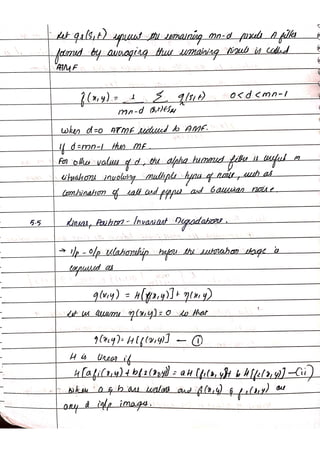 Let gr(s,t) represent the remaining mn-d pixels A filter
formed by averaging these remaining pixels is called
ATMF
f̂(x,y) = 1/(mn-d) Σ (s,t)∈Sxy g(s,t) 0<d<mn-1
when d=0 ATMF reduced to AMF.
if d=mn-1 then MF.
For other values of d, the alpha trimmed filter is useful in
situations involving multiple types of noise, such as
combination of salt and pepper and Gaussian noise.
5.5 Linear, Position-Invariant Degradations.
→ i/p - o/p relationship before the restoration stage is
expressed as
g(x,y) = H[f(x,y)] + η(x,y)
Let us assume η(x,y) = 0 so that
g(x,y) = H[f(x,y)] — ①
H is linear if
H[af1(x,y) + bf2(x,y)] = aH[f1(x,y)] + bH[f2(x,y)] — (ii)
where a & b are scalars and f1(x,y) & f2(x,y) are
any 2 i/p images.